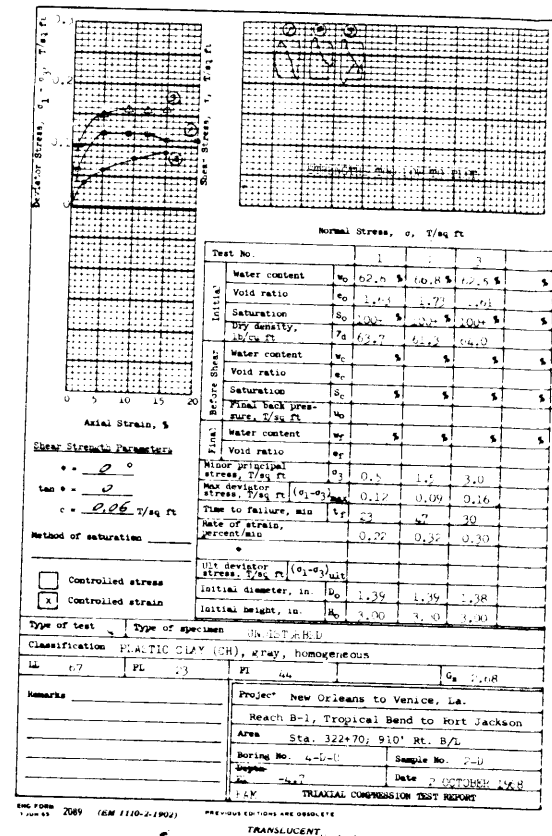 0.3
0.2
0.1
0
Deviator Stress, σ1 - σ3, T/sq ft
Shear Stress, τ, T/sq ft
0 5 10 15 20
Axial Strain, %
Normal Stress, σ, T/sq ft
Shear Strength Parameters
φ = 0 °
tan φ = 0
c = 0.06 T/sq ft
Method of saturation
Controlled stress
x Controlled strain
Test No. 1 3
Initial
Water content w₀ 62.6 % 66.8 % 62.5 % %
Void ratio e₀ 1.63 1.73 1.61
Saturation S₀ 100+ % 100+ % 100+ % %
Dry density, lb/cu ft γd 63.7 61.3 64.0
Before Shear
Water content wc % % % %
Void ratio ec
Saturation Sc % % % %
Final back pressure, T/sq ft u₀
Final
Water content wf % % % %
Void ratio ef
Minor principal stress, T/sq ft σ3 0.5 1.5 3.0
Max deviator stress, T/sq ft (σ1-σ3)max 0.12 0.09 0.16
Time to failure, min tf 23 47 30
Rate of strain, percent/min 0.22 0.32 0.30
Ult deviator stress, T/sq ft (σ1-σ3)ult
Initial diameter, in. D₀ 1.39 1.39 1.38
Initial height, in. H₀ 3.00 3.00 3.00
Type of test Type of specimen UNDISTURBED
Classification PLASTIC CLAY (CH), gray, homogeneous
LL 67 PL 23 PI 44 Gs 2.68
Remarks
Project New Orleans to Venice, La.
Reach B-1, Tropical Bend to Fort Jackson
Area Sta. 322+70; 910' Rt. B/L
Boring No. 4-D-U Sample No. 2-D
Depth El -4.7 Date 2 OCTOBER 1968
TRIAXIAL COMPRESSION TEST REPORT
ENG FORM 1 JUN 65 2089 (EM 1110-2-1902) PREVIOUS EDITIONS ARE OBSOLETE
TRANSLUCENT